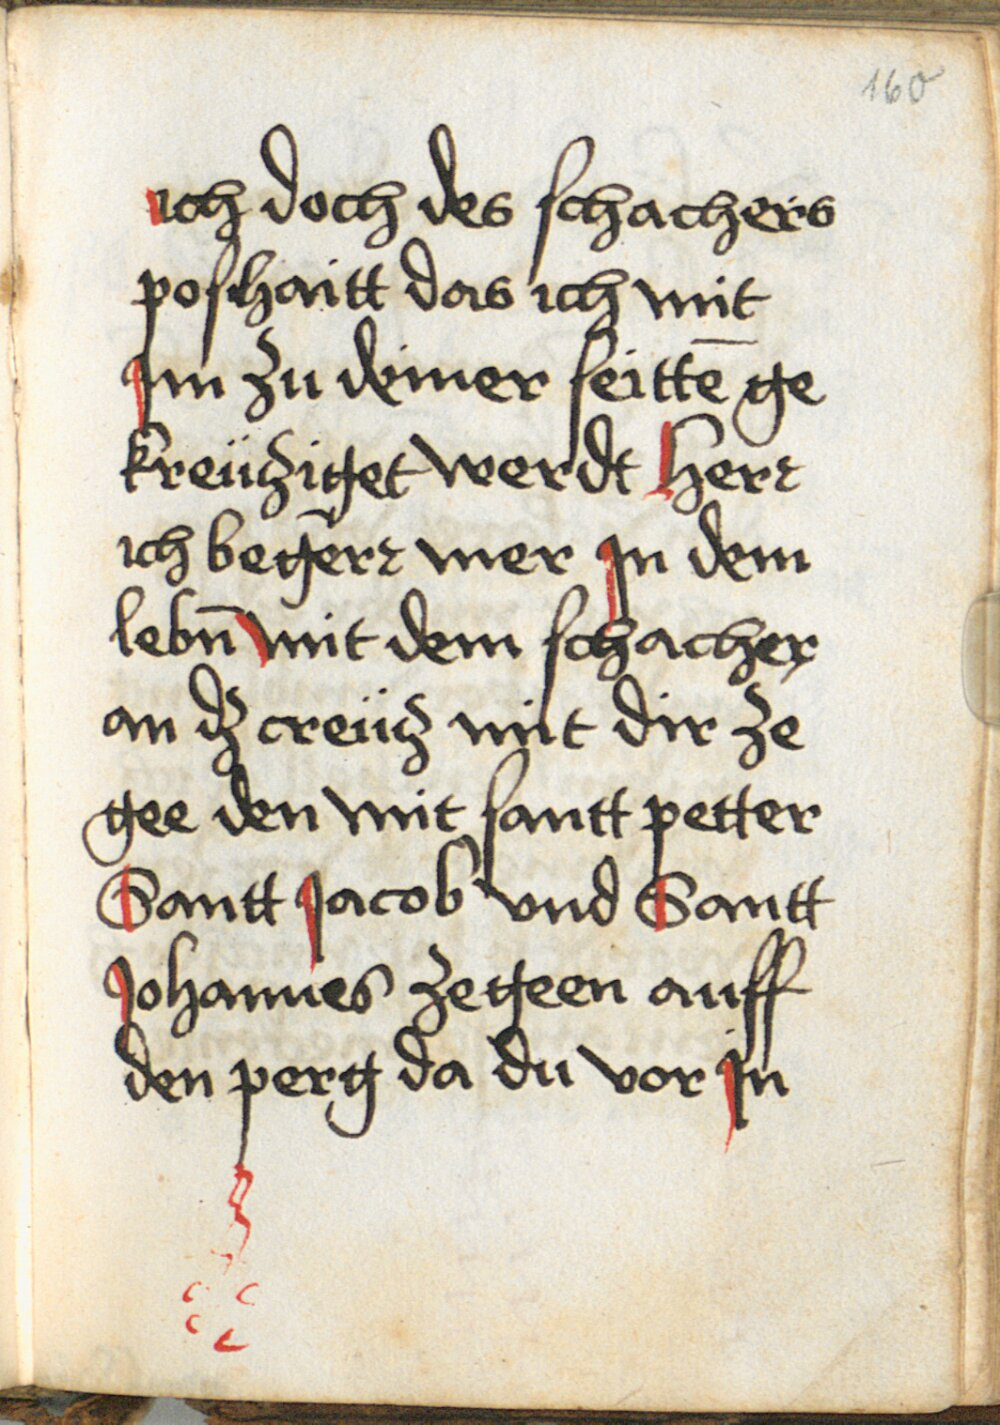 160
ich doch des schachers
poshaitt das ich mit
Jm zu deiner seittē ge
kreütziget werdt Herr
ich begerr mer Jn dem
lebn̄ mit dem schacher
an dz creütz mit dir ze
gee den mit santt petter
Santt Jacob vnd Santt
Johannes ze geen auff
den perg da du vor Jn